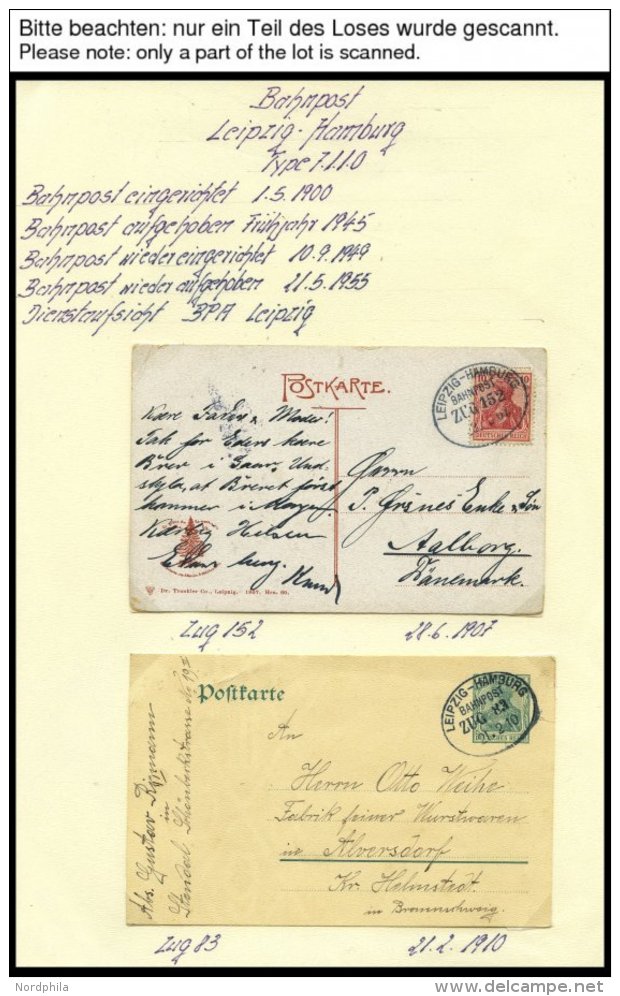 Bitte beachten: nur ein Teil des Loses wurde gescannt.
Please note: only a part of the lot is scanned.
Bahnpost
Leipzig-Hamburg
Type 7.1.1.0
Bahnpost eingerichtet 1.5.1900
Bahnpost aufgehoben Frühjahr 1945
Bahnpost wiedereingerichtet 10.9.1949
Bahnpost wieder aufgehoben 21.5.1955
Dienstaufsicht BPA Leipzig
POSTKARTE.
LEIPZIG-HAMBURG
BAHNPOST
ZUG 152
DEUTSCHES REICH
Kære Fader & Moder!
Tak for Eders kære
Brev i Gaar, Und-
skyld, at Brevet først
kommer i Morgen.
Kærlig Hilsen
Knud
Herrn
Enke & Søn
Aalborg.
Dänemark.
Dr. Trenkler Co., Leipzig. 1907.
Zug 152 28.6.1907
Postkarte
LEIPZIG-HAMBURG
BAHNPOST
ZUG 83
2.10
DEUTSCHES REICH
An
Herrn Otto Weihe
Fabrik feiner Wurstwaren
in Alversdorf
Kr. Helmstedt
in Braunschweig
Abs. Gustav
in
Stendal,
Zug 83 21.2.1910
Nordphila
delcampe.net